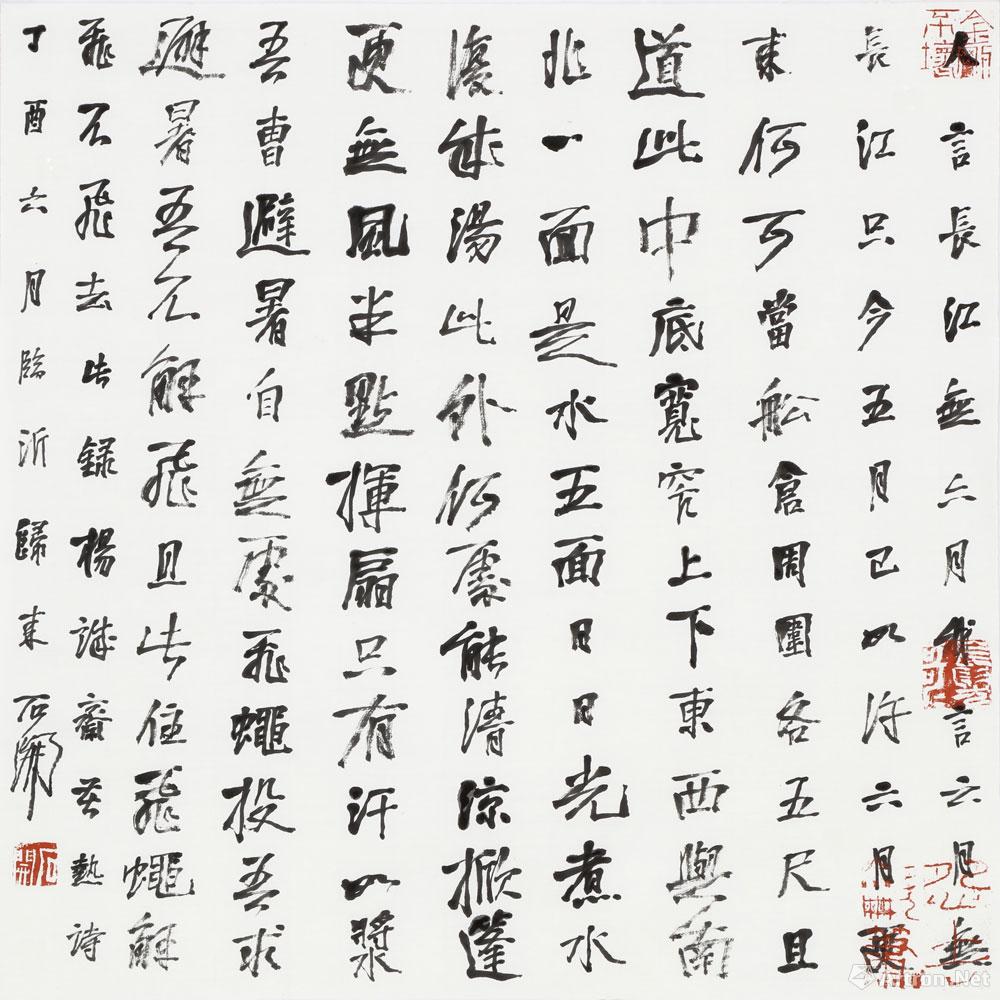 人言長江無六月我言六月無
長江只今五月已如許六月更
來何可當船倉周圍各五尺且
道此中底寬窄上下東西與南
北一面是水五面日日光煮水
復成湯此外何處能清涼掀篷
更無風半點揮扇只有汗如漿
吾曹避暑自無處飛蠅投吾求
避暑吾不解飛且此住飛蠅解
飛不飛去此録楊誠齋苦熱詩
丁酉六月臨沂歸來石開
石開
金剛不壞
Artron.Net